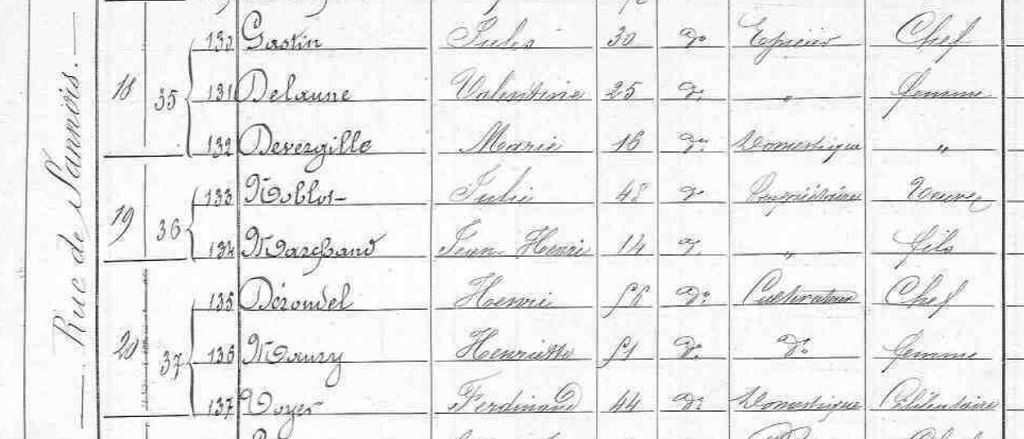 Rue de Sannois.
130 Gastin Jules 30 do Epicier Chef
18 35 131 Delaune Valentine 25 do " femme
132 Devergille Marie 16 do Domestique "
133 Noblot Julie 48 do Propriétaire Veuve
19 36 134 Marchand Jean Henri 14 do " fils
135 Dézoudel Henri 56 do Cultivateur Chef
20 37 136 Maury Henriette 51 do do femme
137 Voyer Ferdinand 44 do Domestique Célibataire